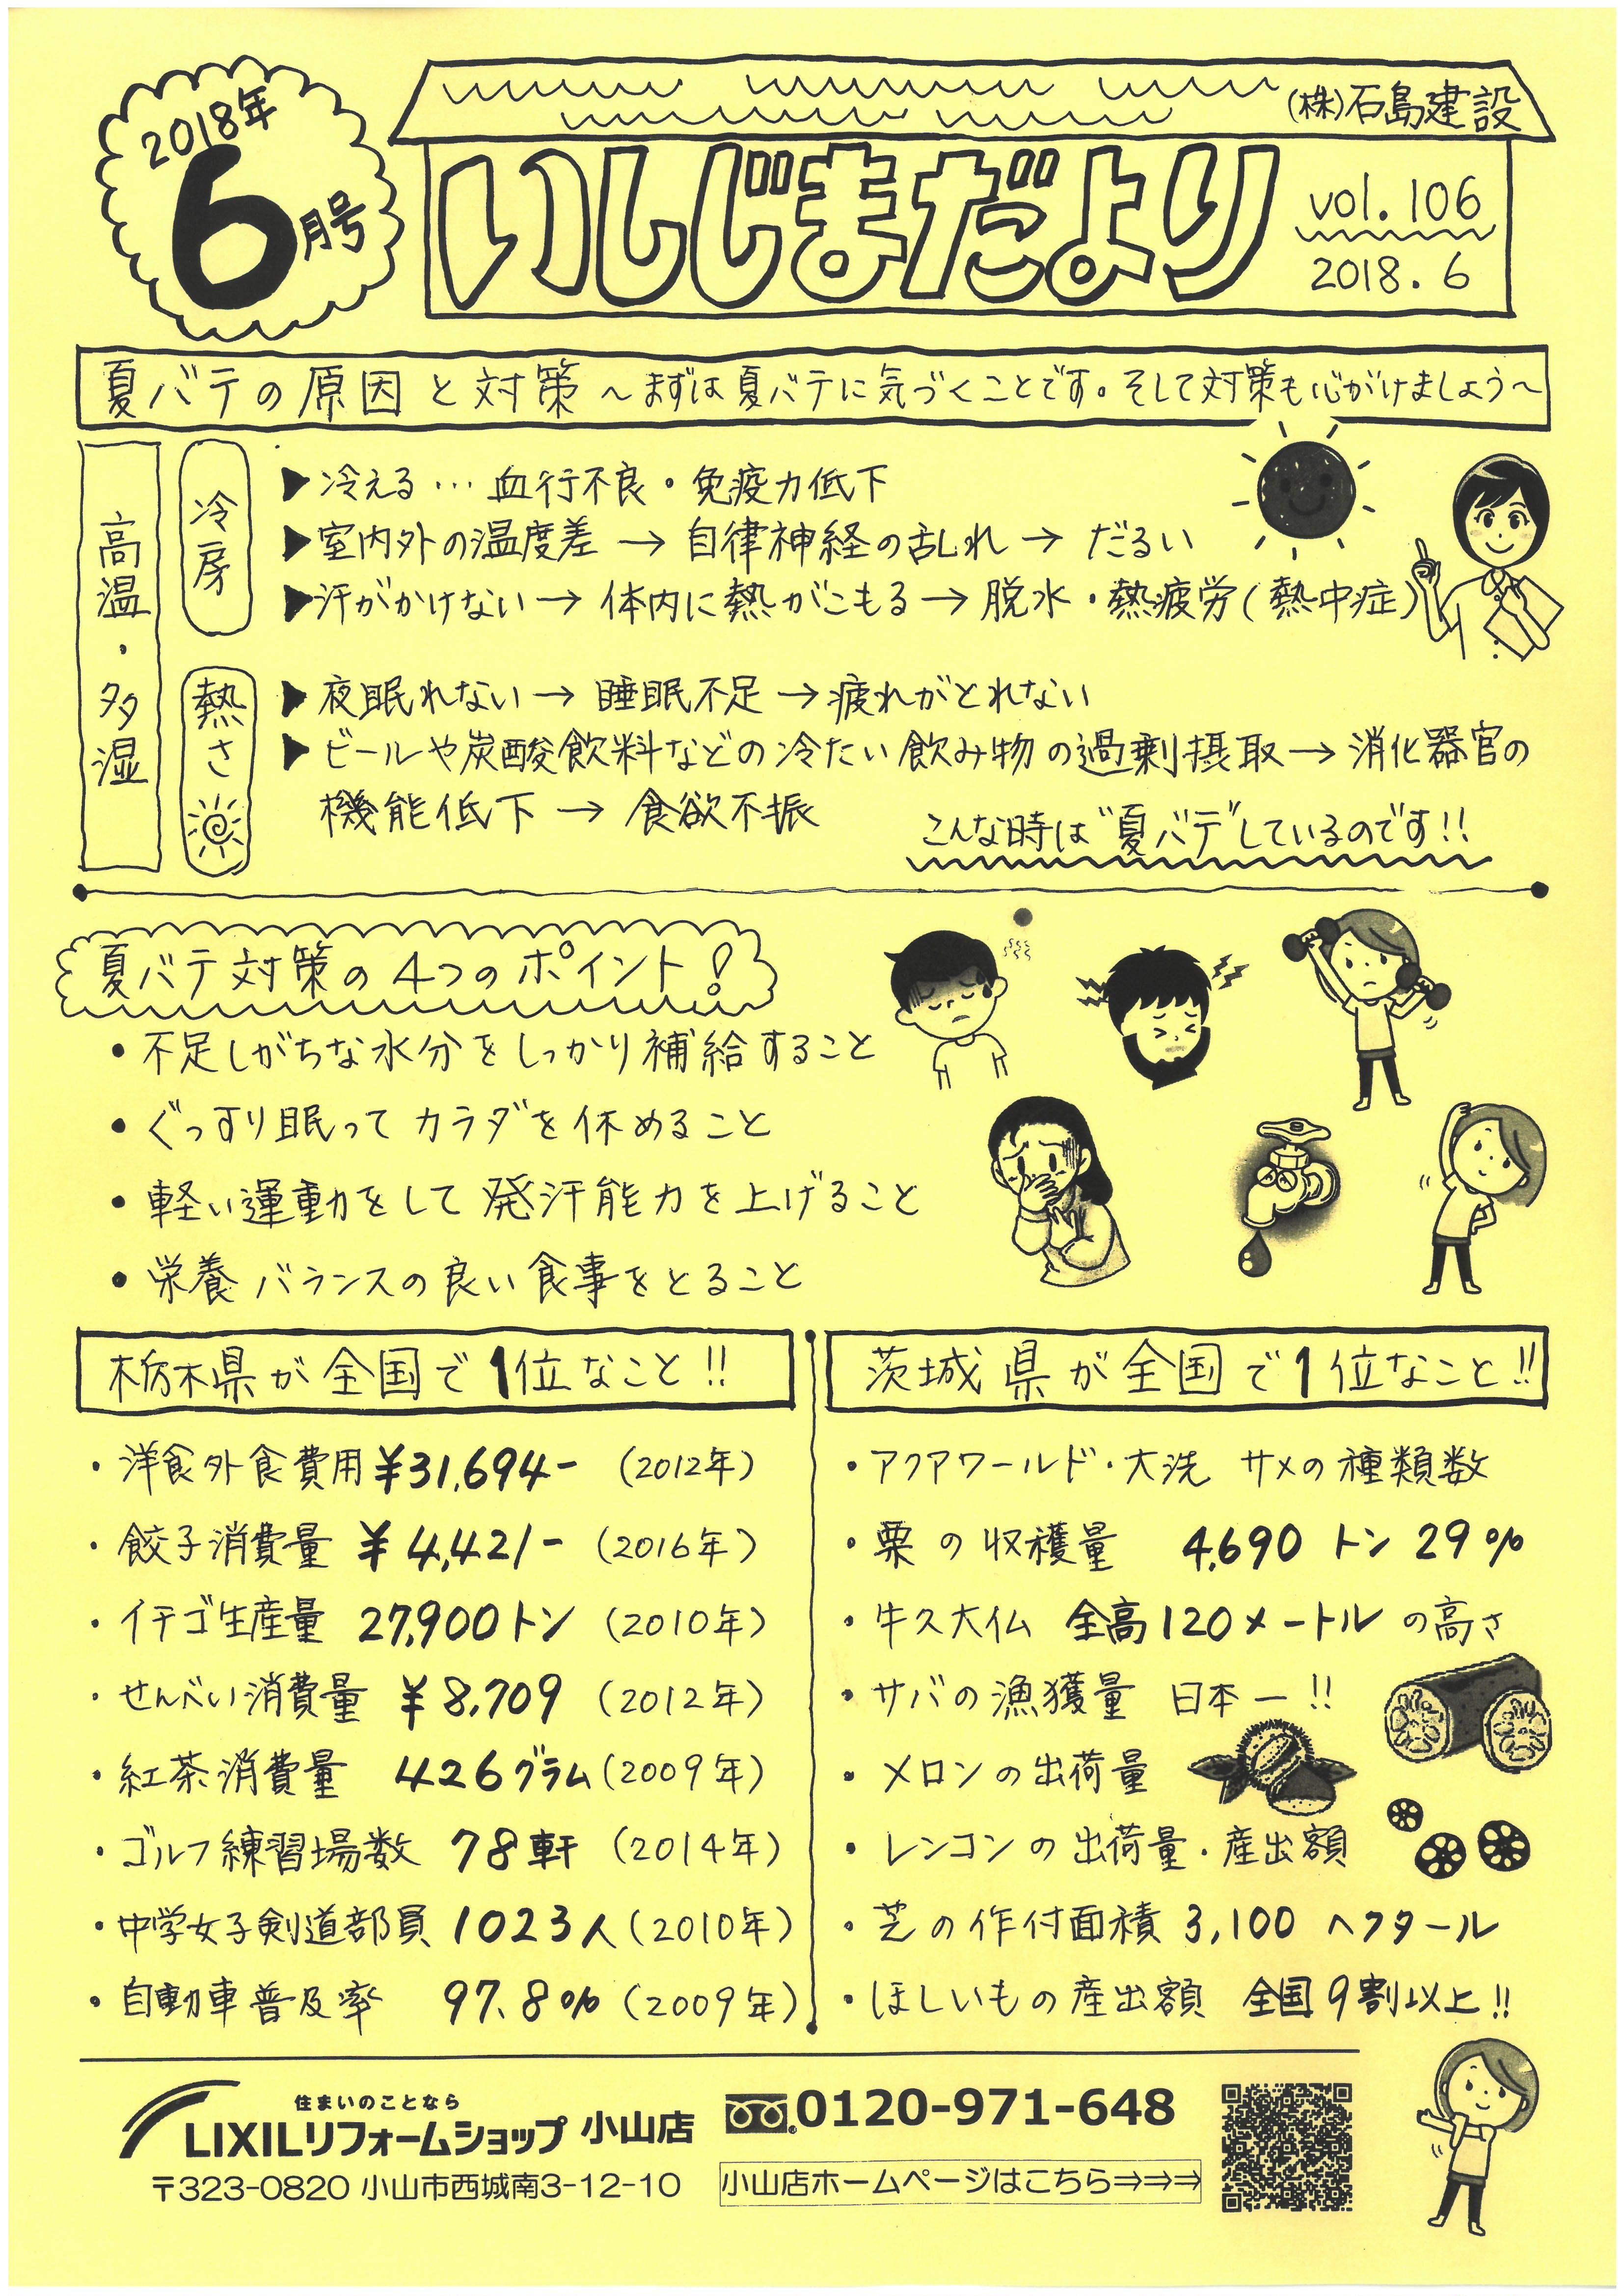 2018年
6月号
(株)石島建設
いしじまだより
vol.106
2018.6
夏バテの原因と対策 ～まずは夏バテに気づくことです。そして対策も心がけましょう～
高温・多湿
冷房
▶冷える…血行不良・免疫力低下
▶室内外の温度差→自律神経の乱れ→だるい
▶汗がかけない→体内に熱がこもる→脱水・熱疲労(熱中症)
熱さ
▶夜眠れない→睡眠不足→疲れがとれない
▶ビールや炭酸飲料などの冷たい飲み物の過剰摂取→消化器官の
機能低下→食欲不振
こんな時は"夏バテ"しているのです!!
夏バテ対策の4つのポイント!
・不足しがちな水分をしっかり補給すること
・ぐっすり眠ってカラダを休めること
・軽い運動をして発汗能力を上げること
・栄養バランスの良い食事をとること
栃木県が全国で1位なこと!!
・洋食外食費用 ¥31,694- (2012年)
・餃子消費量 ¥4,421- (2016年)
・イチゴ生産量 27,900トン (2010年)
・せんべい消費量 ¥8,709 (2012年)
・紅茶消費量 426グラム (2009年)
・ゴルフ練習場数 78軒 (2014年)
・中学女子剣道部員 1023人 (2010年)
・自動車普及率 97.8% (2009年)
茨城県が全国で1位なこと!!
・アクアワールド・大洗 サメの種類数
・栗の収穫量 4,690トン 29%
・牛久大仏 全高120メートルの高さ
・サバの漁獲量 日本一!!
・メロンの出荷量
・レンコンの出荷量・産出額
・芝の作付面積 3,100ヘクタール
・ほしいもの産出額 全国9割以上!!
住まいのことなら
LIXILリフォームショップ 小山店
〒323-0820 小山市西城南3-12-10
0120-971-648
小山店ホームページはこちら⇒⇒⇒